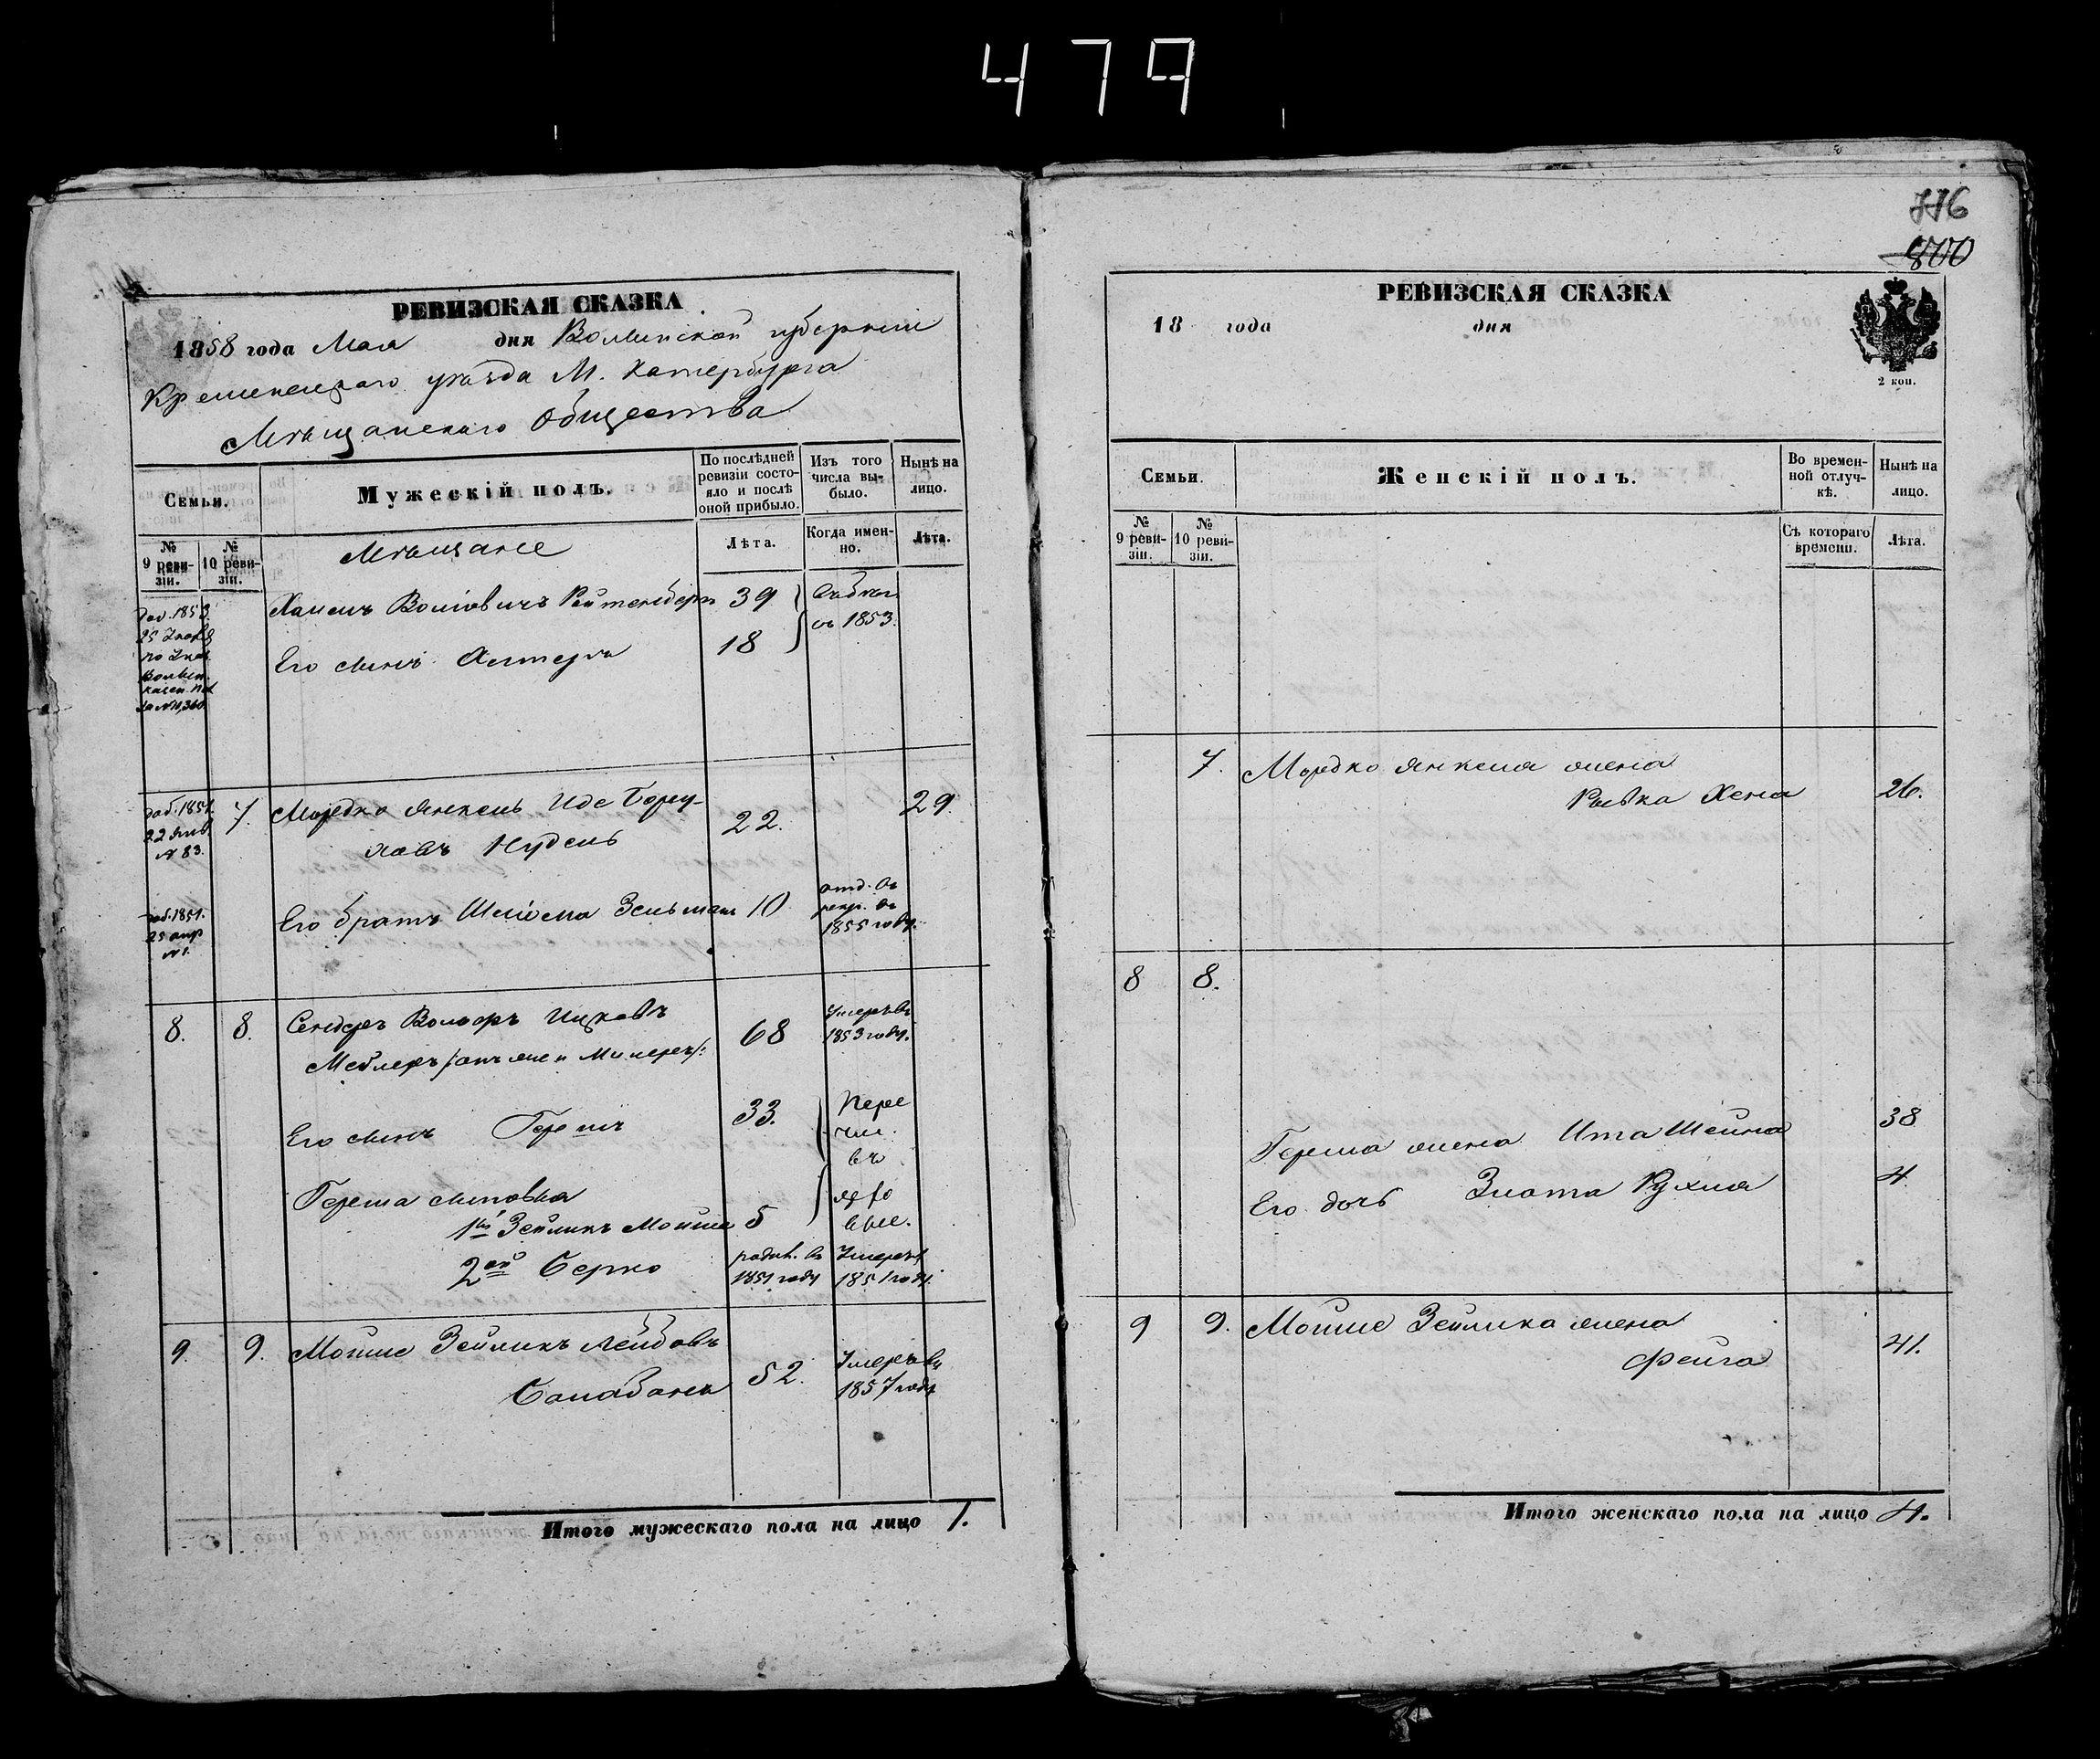 479
776
800
РЕВИЗСКАЯ СКАЗКА
1858 года Мая дня Волынской губернии
Кременецкаго уѣзда М. Катербурга
Мѣщанскаго Общества
Семьи.
Мужескій полъ.
По послѣдней ревизіи состояло и послѣ оной прибыло.
Изъ того числа выбыло.
Нынѣ на лицо.
№ 9 ревизіи.
№ 10 ревизіи.
Мѣщане
Лѣта.
Когда именно.
Лѣта.
доб. 1853.
25
по
Волын.
казен. пал
за №11,360.
Хаимъ Волiовичъ Ройтенберъ 39
съ 1853.
Его сынъ Алтеръ 18
доб. 1851.
22 янв
№ 83.
7. Мордко Янкель Иде Борух-
ловъ Нудель 22. 29.
доб. 1851.
25 апр
№ 1.
Его братъ Шліома Зельман 10
отд. въ
рекр. въ
1855 году.
8. 8. Сендеръ Вольфъ Ицковъ
Меблеръ /онъ же и Милеръ/: 68
Умеръ въ
1853 году.
Его сынъ Гершъ 33.
Пере
чис.
въ
Герша сыновья
1ый Зейликъ Мойше 5
2ой Берко
родив. въ
1851 году
Умеръ в
1851 году.
9. 9. Мойше Зейликъ Лейбовъ
Балабанъ 52.
Умеръ въ
1857 году
Итого мужескаго пола на лицо 1.
РЕВИЗСКАЯ СКАЗКА
18 года дня
2 коп.
Семьи.
Женскій полъ.
Во временной отлучкѣ.
Нынѣ на лицо.
№ 9 ревизіи.
№ 10 ревизіи.
Съ котораго времени.
Лѣта.
7. Мордко Янкеля жена
Рывка Хена 26.
8 8.
Герша жена Ита Шейна 38
Его дочь Злота Рухля 4
9 9. Мойше Зейлика жена
Фейга 41.
Итого женскаго пола на лицо 4.